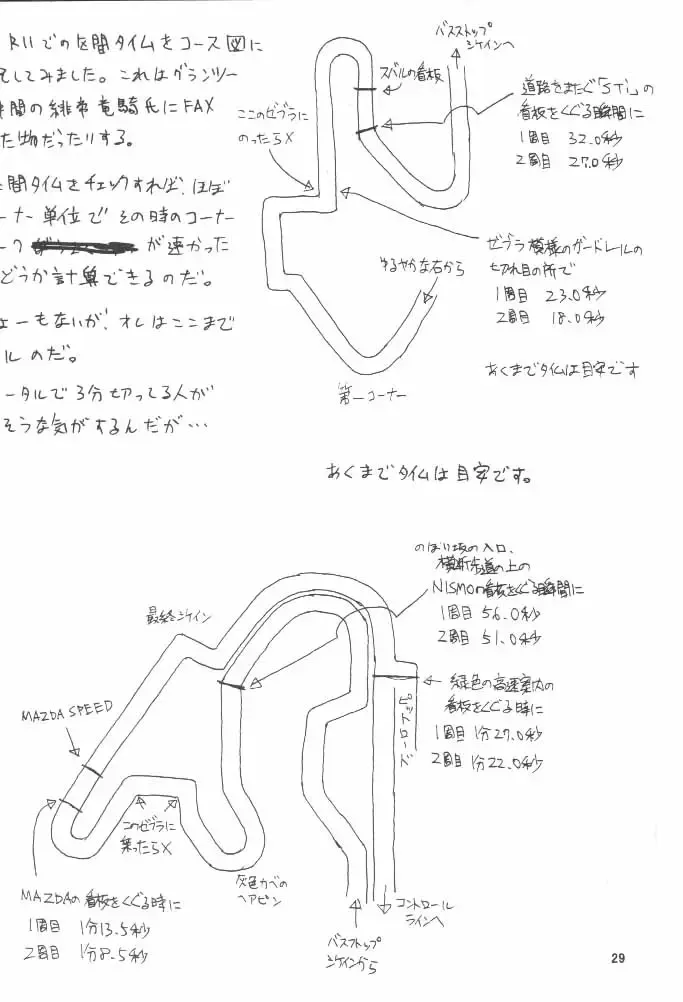 R11での区間タイムをコース図に
してみました。これはグランツー
間の緋帝竜騎氏にFAX
た物だったりする。
間タイムをチェックすれば、ほぼ
ーナー単位でその時のコーナー
が速かった
どうか計算できるのだ。
ェーもないが、オレはここまで
ルのだ。
ータルで3分切ってる人が
そうな気がするんだが…
バスストップ
シケインへ
スバルの看板
ここのゼブラに
のったら×
道路をまたぐ「STi」の
看板をくぐる瞬間に
1周目 32.0秒
2周目 27.0秒
ゼブラ模様のガードレールの
切れ目の所で
1周目 23.0秒
2周目 18.0秒
ゆるやかな右から
第一コーナー
あくまでタイムは目安です
あくまでタイムは目安です。
のぼり坂の入口、
横断歩道の上の
NISMOの看板をくぐる瞬間に
1周目 56.0秒
2周目 51.0秒
最終シケイン
緑色の高速案内の
看板をくぐる時に
1周目 1分27.0秒
2周目 1分22.0秒
ピットロード
MAZDA SPEED
このゼブラに
乗ったら×
灰色カベの
ヘアピン
MAZDAの看板をくぐる時に
1周目 1分13.5秒
2周目 1分8.5秒
コントロール
ラインへ
バスストップ
シケインから
29